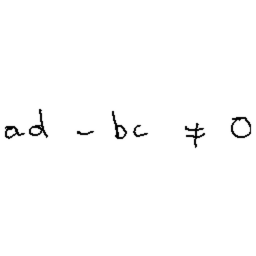 ad - bc ≠ 0